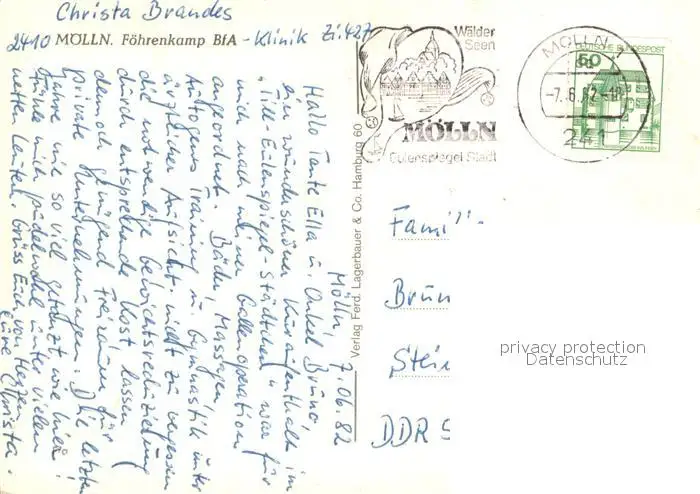 Christa Brandes
2410 MÖLLN. Föhrenkamp BfA - Klinik Zi. 427
Mölln, 7.06.82
Hallo Tante Ella u. Onkel Bruno,
ein wunderschöner Kuraufenthalt im
"Till-Eulenspiegel-Städtchen" war für
mich nach meiner Gallenoperation
angeordnet. Bäder, Massagen,
Autogenes Training u. Gymnastik unter
ärztlicher Aufsicht, nicht zu vergessen
die notwendige Gewichtsreduzierung
durch entsprechende Kost, lassen
dennoch genügend Freiraum für
private Unternehmungen. Die letzten
Jahre nie so viel getanzt, wie hier
fühle mich pudelwohl unter vielen
netten Leuten. Grüss Euch von Herzen
Eure Christa.
Verlag Ferd. Lagerbauer & Co. Hamburg 60
Wälder
Seen
MÖLLN
Eulenspiegel Stadt
MÖLLN 1
-7.6.82-18
241
DEUTSCHE BUNDESPOST
50
Fami
Brun
Stei
DDR
privacy protection
Datenschutz